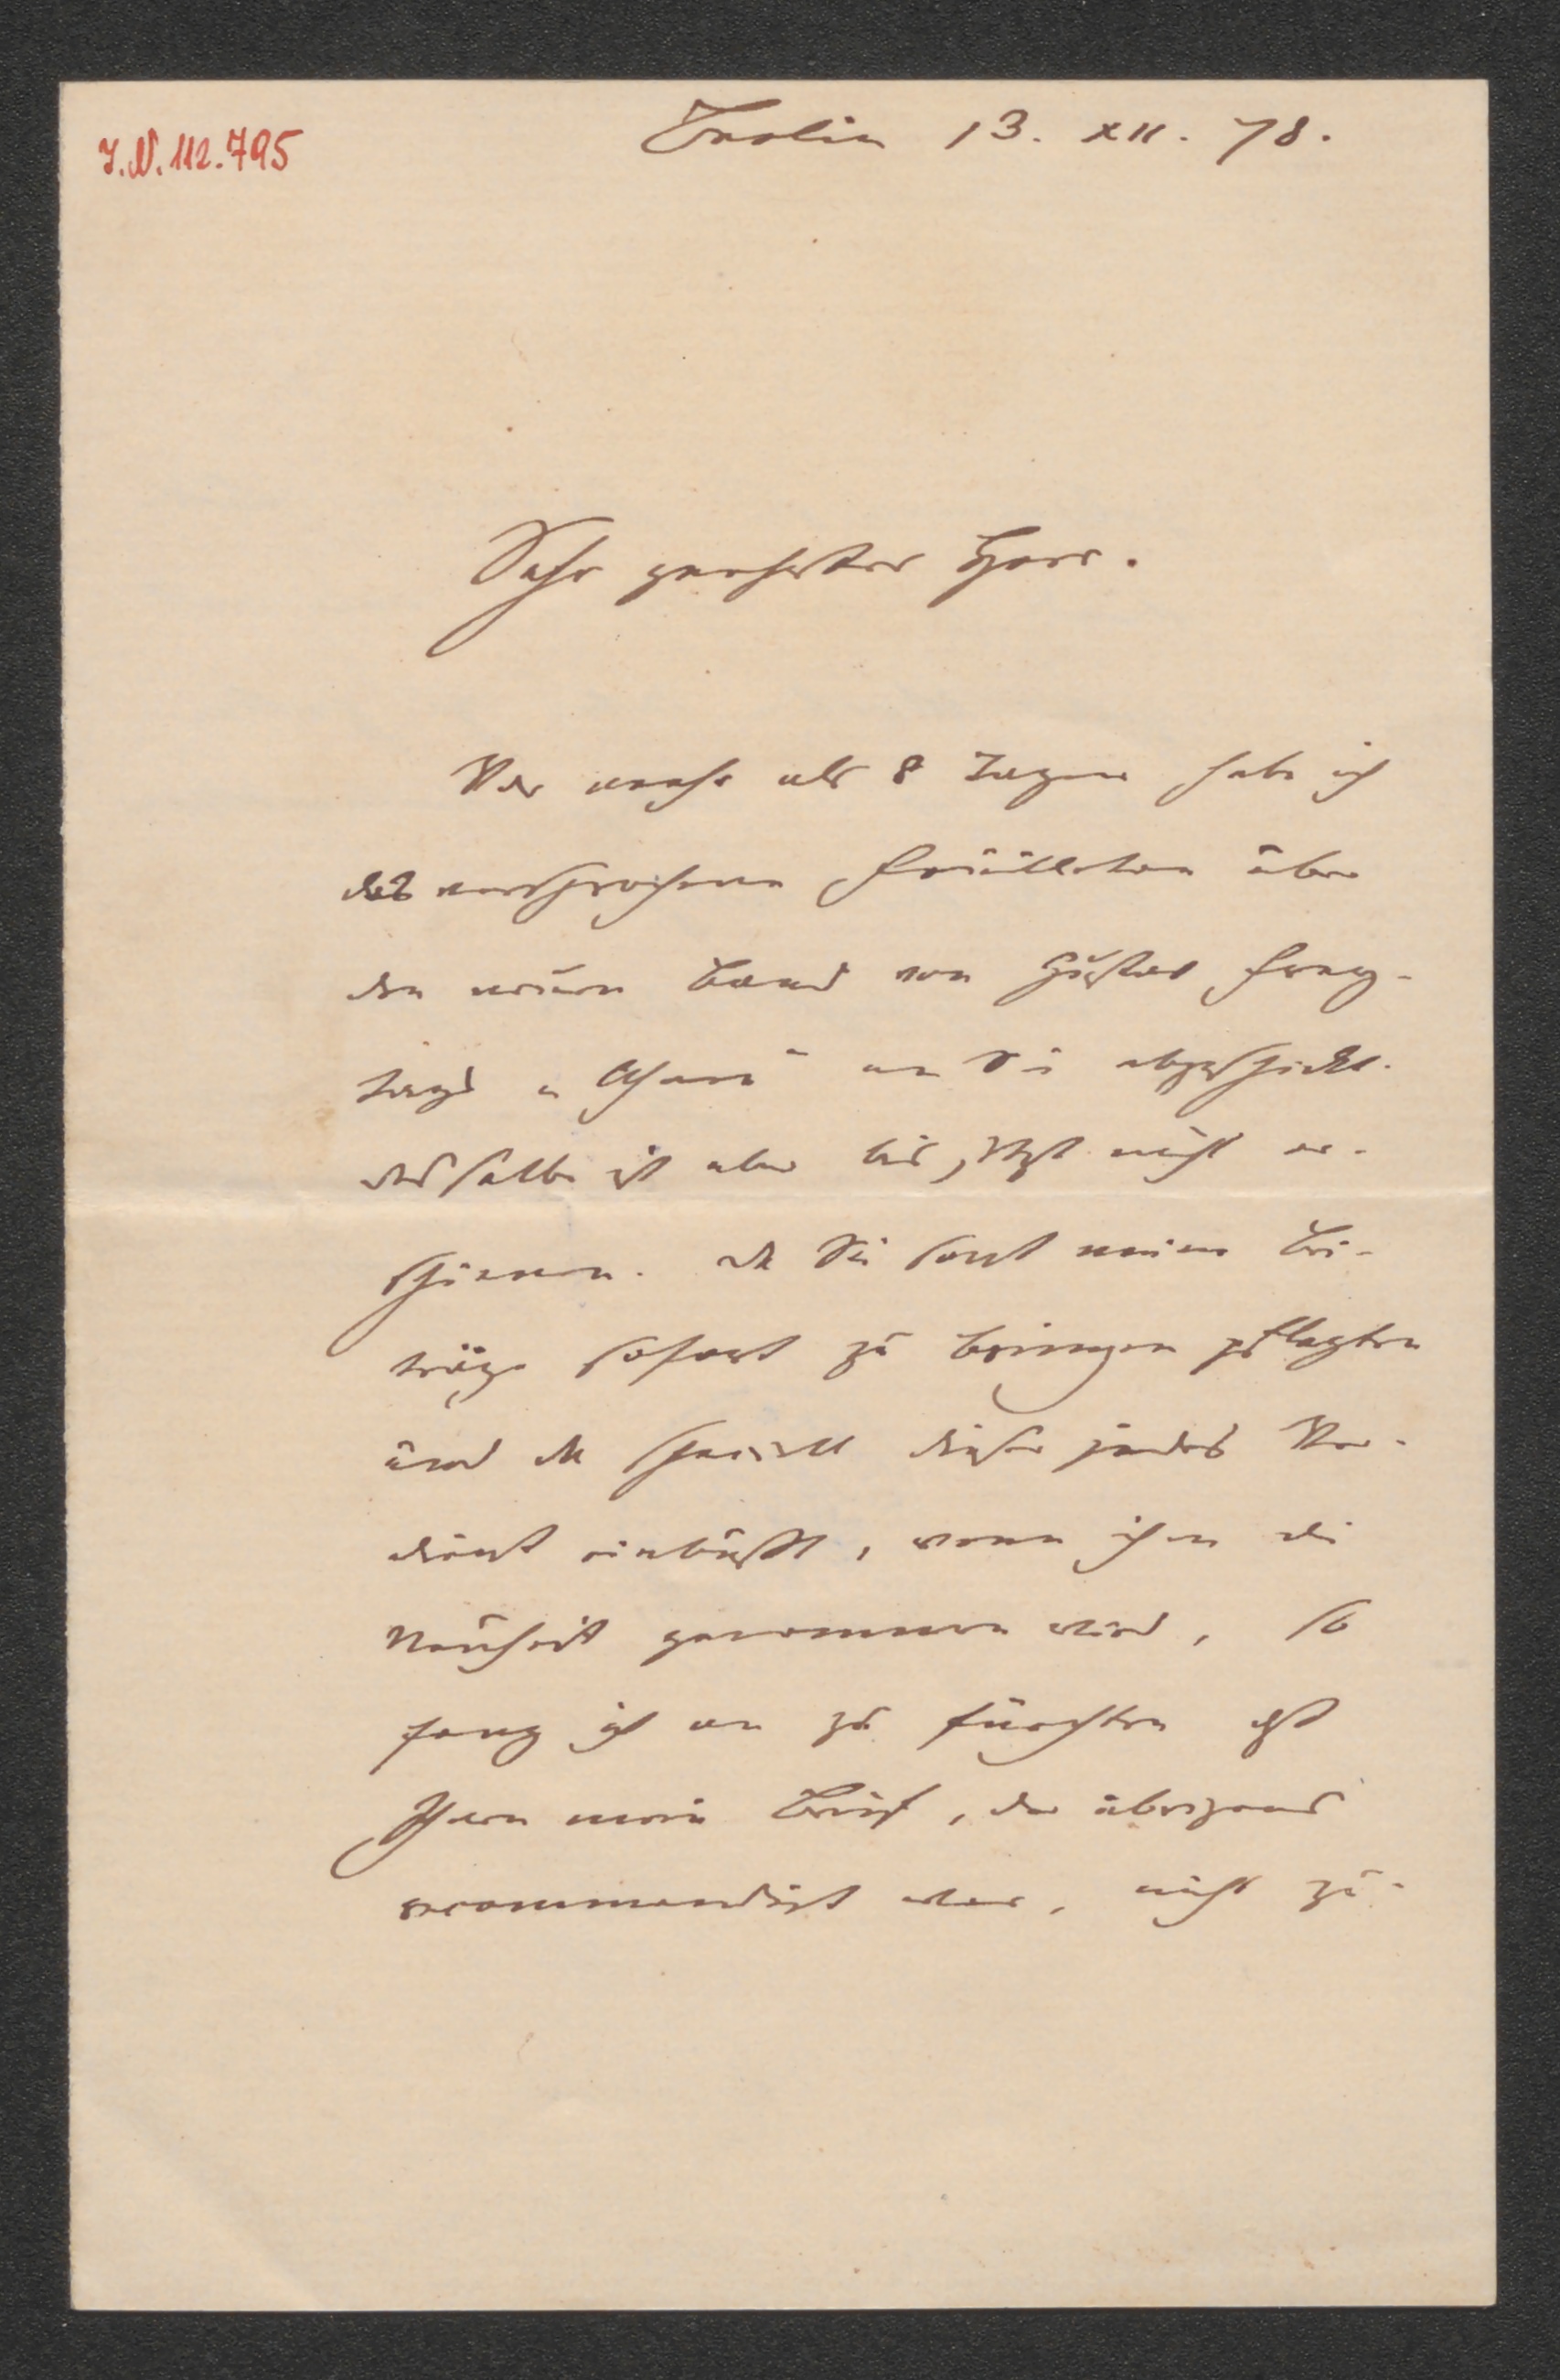 I.N. 112.795
Berlin 13. XII. 78.
Sehr geehrter Herr.
Vor mehr als 8 Tagen habe ich
das versprochene Feuilleton über
den neuen Band von Gustav Frey-
tags „Ahnen“ an Sie abgeschickt.
dasselbe ist aber bis jetzt nicht er-
schienen. da Sie sonst meine Bei-
träge sofort zu bringen pflegten
und da speciell dieser jedes Ver-
dienst einbüßt, wenn ihm die
Neuheit genommen wird, so
fang ich an zu fürchten ist
Ihnen mein Brief, der übrigens
recommandirt war, nicht zu-